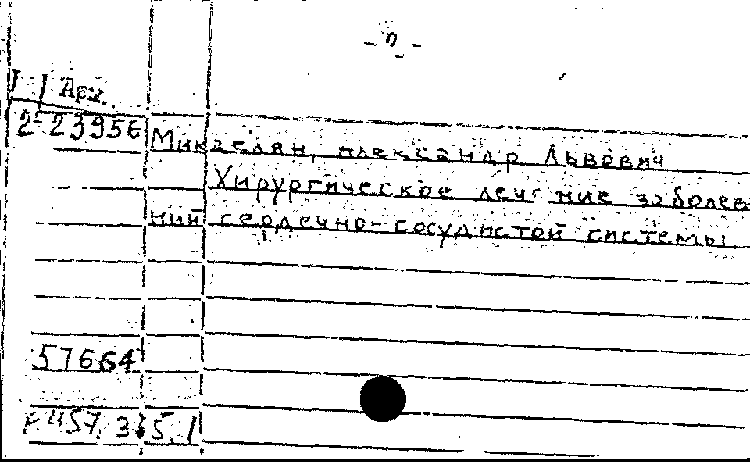 - п -
Арм.
2-23956 Микаелян, Александр Львович
Хирургическое лечение заболева
ний сердечно-сосудистой системы
57664
457.35.1